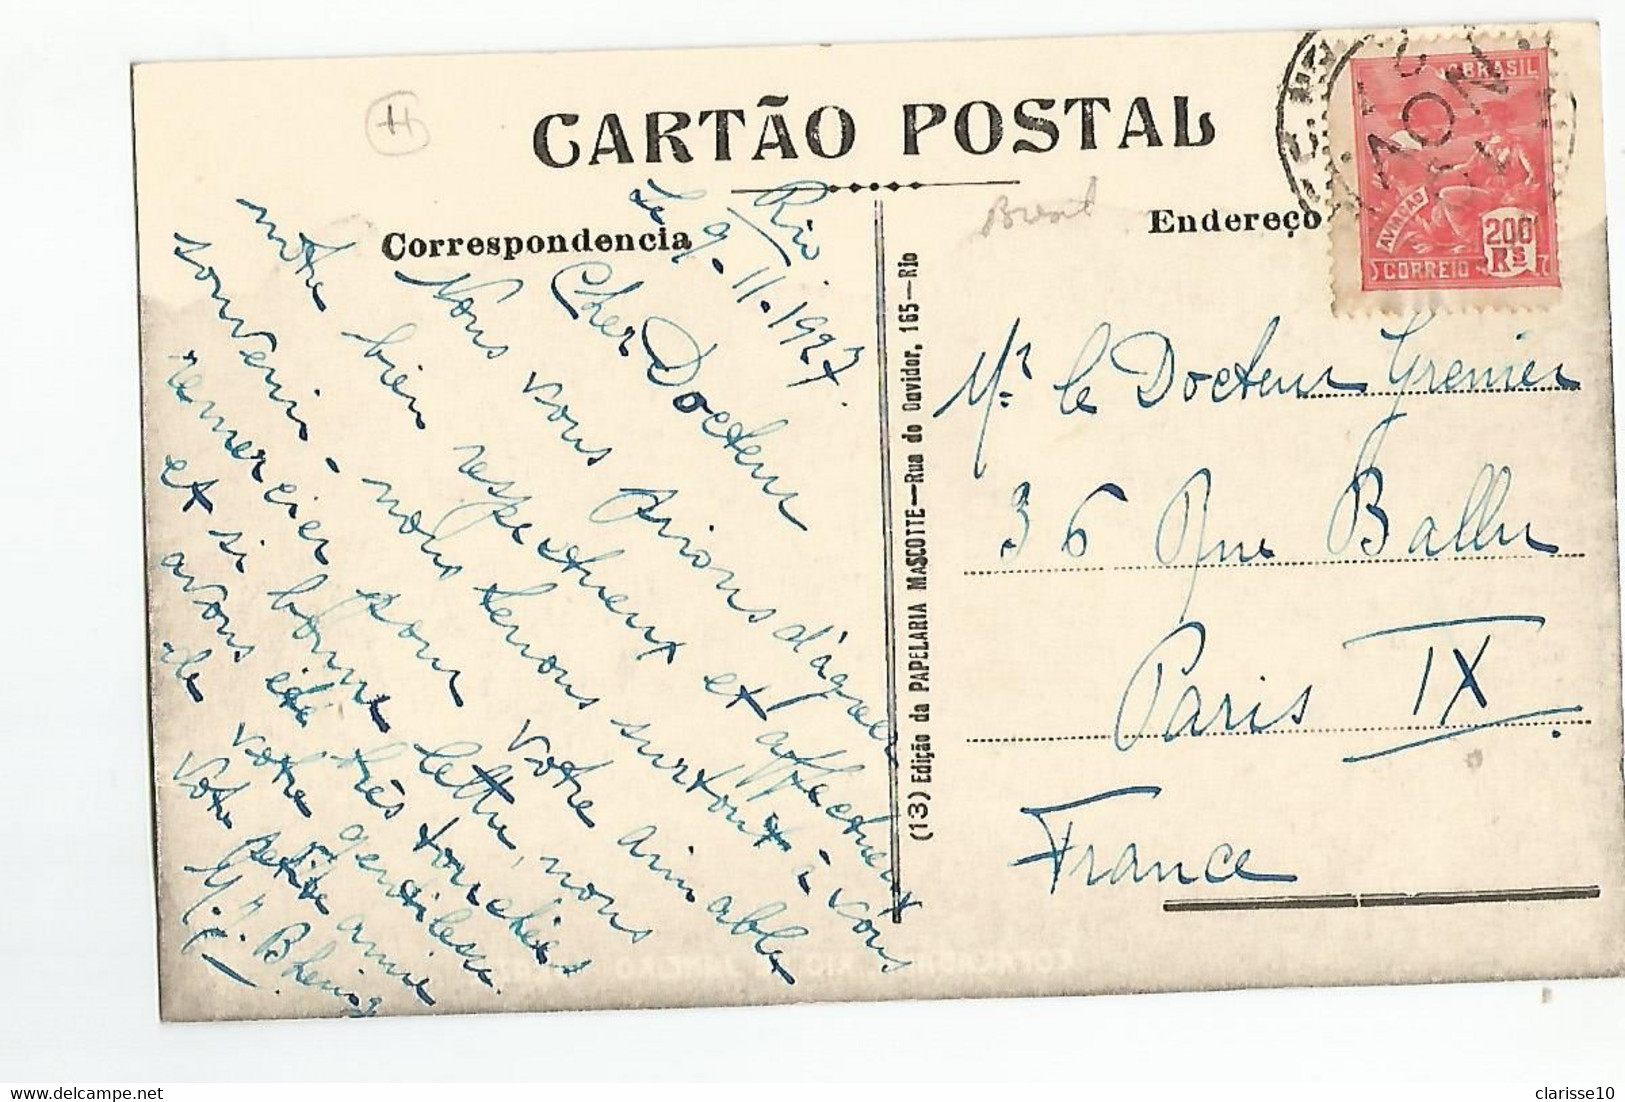 CARTÃO POSTAL
Correspondencia
Endereço
BRASIL
AVIAÇÃO
200
Rs
CORREIO
H
Rio,
Le 9-11-1927.
Cher Docteur
Nous vous prions d'agréer
notre bien respectueux et affectueux
souvenir - nous tenons surtout à vous
remercier pour votre aimable
et si bonne lettre, nous
avons été très touchées
de votre gentillesse.
Votre petite amie
(13) Edição da PAPELARIA MASCOTTE—Rua do Ouvidor, 165—Rio
Mr. le Docteur Grenier
36 Rue Ballu
Paris IX.
France
clarisse10